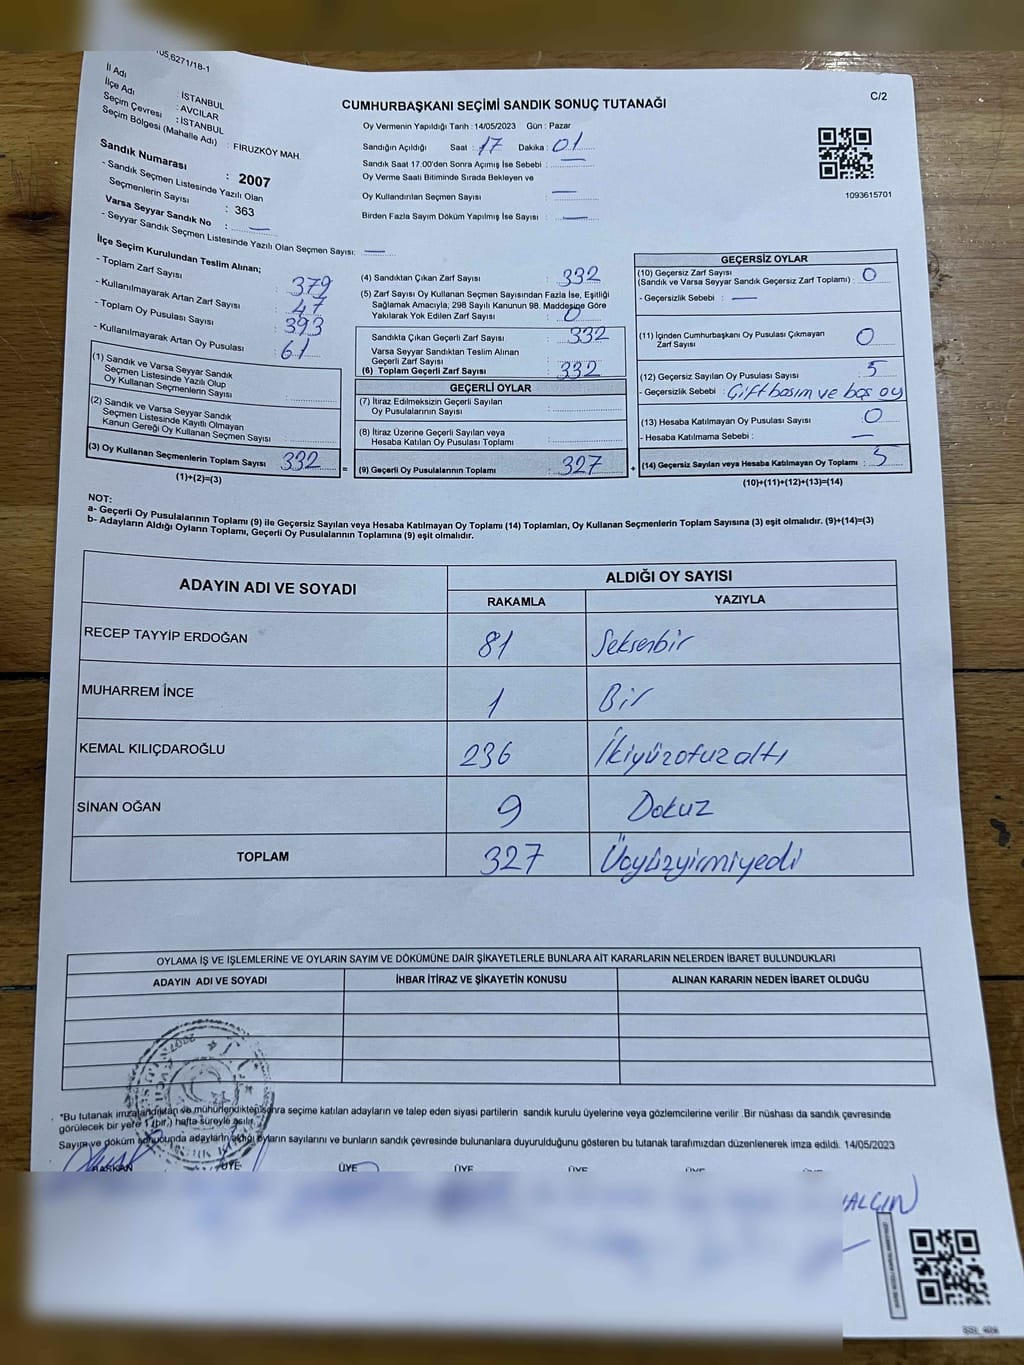 105,6271/18-1
İl Adı : İSTANBUL
İlçe Adı : AVCILAR
Seçim Çevresi : İSTANBUL
Seçim Bölgesi (Mahalle Adı) : FİRUZKÖY MAH.
Sandık Numarası : 2007
- Sandık Seçmen Listesinde Yazılı Olan
Seçmenlerin Sayısı : 363
Varsa Seyyar Sandık No : —
- Seyyar Sandık Seçmen Listesinde Yazılı Olan Seçmen Sayısı: —
C/2
CUMHURBAŞKANI SEÇİMİ SANDIK SONUÇ TUTANAĞI
Oy Vermenin Yapıldığı Tarih : 14/05/2023 Gün : Pazar
Sandığın Açıldığı Saat : 17 Dakika : 01
Sandık Saat 17.00'den Sonra Açımış İse Sebebi : —
Oy Verme Saati Bitiminde Sırada Bekleyen ve
Oy Kullandırılan Seçmen Sayısı : —
Birden Fazla Sayım Döküm Yapılmış İse Sayısı : —
1093615701
İlçe Seçim Kurulundan Teslim Alınan;
- Toplam Zarf Sayısı : 379
- Kullanılmayarak Artan Zarf Sayısı : 47
- Toplam Oy Pusulası Sayısı : 393
- Kullanılmayarak Artan Oy Pusulası : 61
(1) Sandık ve Varsa Seyyar Sandık
Seçmen Listesinde Yazılı Olup
Oy Kullanan Seçmenlerin Sayısı :
(2) Sandık ve Varsa Seyyar Sandık
Seçmen Listesinde Kayıtlı Olmayan
Kanun Gereği Oy Kullanan Seçmen Sayısı :
(3) Oy Kullanan Seçmenlerin Toplam Sayısı : 332 =
(1)+(2)=(3)
(4) Sandıktan Çıkan Zarf Sayısı : 332
(5) Zarf Sayısı Oy Kullanan Seçmen Sayısından Fazla İse, Eşitliği
Sağlamak Amacıyla; 298 Sayılı Kanunun 98. Maddesine Göre
Yakılarak Yok Edilen Zarf Sayısı : 0
Sandıkta Çıkan Geçerli Zarf Sayısı : 332
Varsa Seyyar Sandıktan Teslim Alınan
Geçerli Zarf Sayısı :
(6) Toplam Geçerli Zarf Sayısı : 332
GEÇERLİ OYLAR
(7) İtiraz Edilmeksizin Geçerli Sayılan
Oy Pusulalarının Sayısı :
(8) İtiraz Üzerine Geçerli Sayılan veya
Hesaba Katılan Oy Pusulası Toplamı :
(9) Geçerli Oy Pusulalarının Toplamı : 327 +
GEÇERSİZ OYLAR
(10) Geçersiz Zarf Sayısı
(Sandık ve Varsa Seyyar Sandık Geçersiz Zarf Toplamı) : 0
- Geçersizlik Sebebi : —
(11) İçinden Cumhurbaşkanı Oy Pusulası Çıkmayan
Zarf Sayısı : 0
(12) Geçersiz Sayılan Oy Pusulası Sayısı : 5
- Geçersizlik Sebebi : Çift basım ve boş oy
(13) Hesaba Katılmayan Oy Pusulası Sayısı : 0
- Hesaba Katılmama Sebebi : —
(14) Geçersiz Sayılan veya Hesaba Katılmayan Oy Toplamı : 5
(10)+(11)+(12)+(13)=(14)
NOT:
a- Geçerli Oy Pusulalarının Toplamı (9) ile Geçersiz Sayılan veya Hesaba Katılmayan Oy Toplamı (14) Toplamları, Oy Kullanan Seçmenlerin Toplam Sayısına (3) eşit olmalıdır. (9)+(14)=(3)
b- Adayların Aldığı Oyların Toplamı, Geçerli Oy Pusulalarının Toplamına (9) eşit olmalıdır.
ADAYIN ADI VE SOYADI
ALDIĞI OY SAYISI
RAKAMLA YAZIYLA
RECEP TAYYİP ERDOĞAN 81 Seksenbir
MUHARREM İNCE 1 Bir
KEMAL KILIÇDAROĞLU 236 İkiyüzotuzaltı
SİNAN OĞAN 9 Dokuz
TOPLAM 327 Üçyüzyirmiyedi
OYLAMA İŞ VE İŞLEMLERİNE VE OYLARIN SAYIM VE DÖKÜMÜNE DAİR ŞİKAYETLERLE BUNLARA AİT KARARLARIN NELERDEN İBARET BULUNDUKLARI
ADAYIN ADI VE SOYADI İHBAR İTİRAZ VE ŞİKAYETİN KONUSU ALINAN KARARIN NEDEN İBARET OLDUĞU
2007
*Bu tutanak imzalandıktan ve mühürlendikten sonra seçime katılan adayların ve talep eden siyasi partilerin sandık kurulu üyelerine veya gözlemcilerine verilir. Bir nüshası da sandık çevresinde
görülecek bir yere 1 (bir) hafta süreyle asılır.
Sayım ve döküm sonucunda adayların aldığı oyların sayılarını ve bunların sandık çevresinde bulunanlara duyurulduğunu gösteren bu tutanak tarafımızdan düzenlenerek imza edildi. 14/05/2023
BAŞKAN ÜYE ÜYE ÜYE ÜYE ÜYE ÜYE
YALÇIN